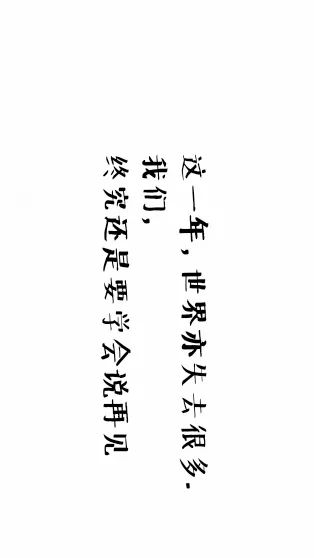 这一年，世界亦失去很多.
我们，
终究还是要学会说再见